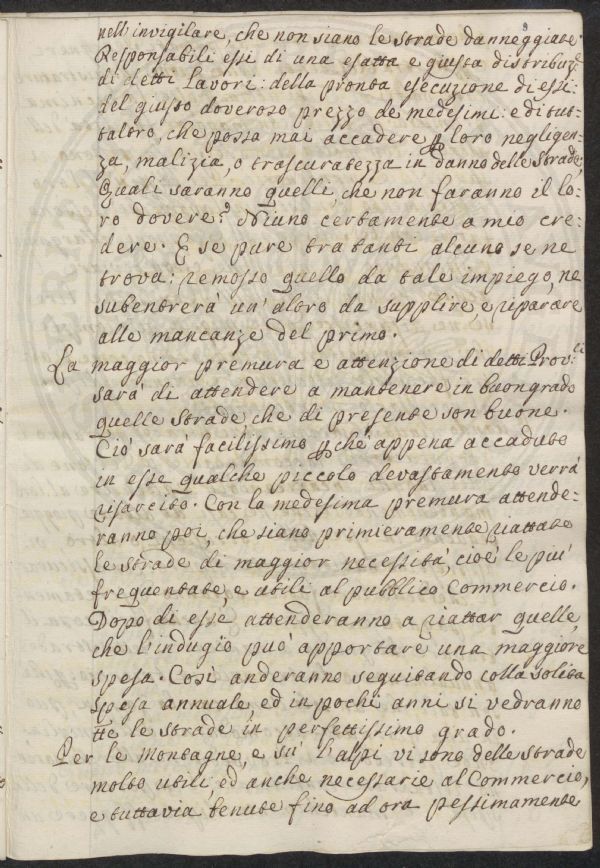 nell'invigilare, che non siano le strade danneggiate.
Responsabili essi di una esatta e giusta distribuz.e
di detti Lavori: della pronta esecuzione di essi:
del giusto doveroso prezzo de medesimi: e di tut=
taltro, che possa mai accadere p loro negligen=
za, malizia, o trascuratezza in danno delle Strade,
Quali saranno quelli, che non faranno il lo=
ro dovere? Niuno certamente a mio cre=
dere. E se pure tra tanti alcuno se ne
trova: remosso quello da tale impiego, ne
subentrerà un'altro da supplire e riparare
alle mancanze del primo.
La maggior premura e attenzione di detti Prov.ri
sarà di attendere a mantenere in buon grado
quelle strade, che di presente son buone.
Ciò sarà facilissimo pchè appena accaduto
in esse qualche piccolo devastamento verrà
risarcito. Con la medesima premura attende=
ranno poi, che siano primieramente riattate
le strade di maggior necessità, cioè le più
frequentate, e utili al pubblico Commercio.
Dopo di esse attenderanno a riattar quelle,
che l'indugio può apportare una maggiore
spesa. Così anderanno seguitando colla solita
spesa annuale, ed in pochi anni si vedranno
tte le strade in perfettissimo grado.
Per le Montagne, e su' l'alpi vi sono delle strade
molto utili, ed anche necessarie al Commercio,
e tuttavia tenute fino ad ora pessimamente